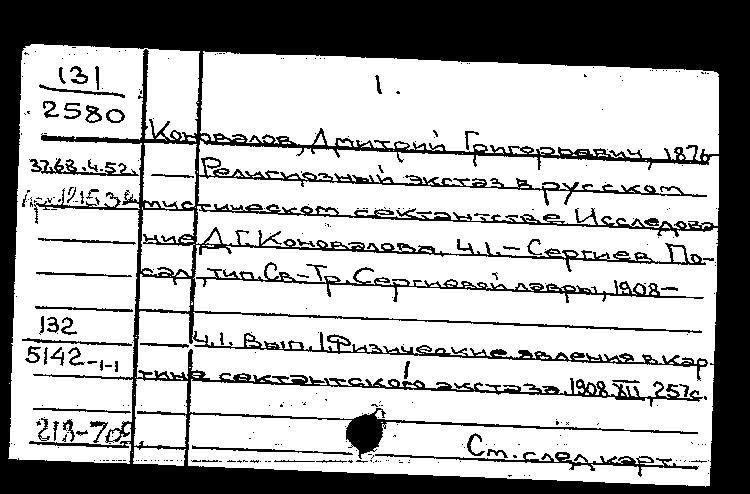 131
1.
2580
Коновалов, Дмитрий Григорьевич, 1876
37.63.4.52.
Религиозный экстаз в русском
мистическом сектантстве. Исследова
ние Д.Г. Коновалова. Ч.1.— Сергиев По-
сад, тип. Св-Тр. Сергиевой лавры, 1908—
132
Ч.1. Вып.1. Физические явления в кар
5142-1-1
тине сектантского экстаза. 1908. XII, 257с.
См. след. карт.